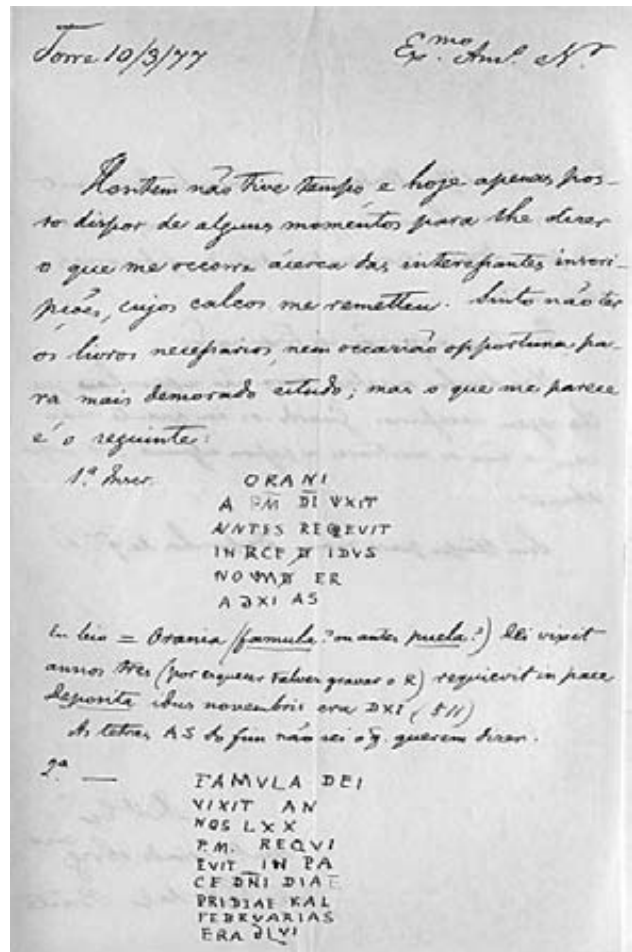 Torre 10/3/77 Ex.mo Am.o N.
Hontem não tive tempo e hoje apenas pos-
so dispor de alguns momentos para lhe dizer
o que me occorre ácerca das interessantes inscri-
pções, cujos calcos me remetteu. Sinto não ter
os livros necessarios, nem occasião opportuna, pa-
ra mais demorado estudo; mas o que me parece
é o seguinte:
1.ª Inscr.
ORANI
A PM DI VXIT
ANTES REQEVIT
IN RCE D IDVS
NOVMB ER
A DXI AS
Eu leio = Orania (famula? ou antes puela?) Dei vixit
annos tres (por esquecer talvez gravar o R) requievit in pace
deposita idus novembris era DXI (511)
As letras AS do fim não sei o q. querem dizer.
2.ª —
FAMVLA DEI
VIXIT AN
NOS LXX
P.M. REQVI
EVIT IN PA
CE DÑI DIAE
PRIDIAE KAL
FEBRVARIAS
ERA DLVI